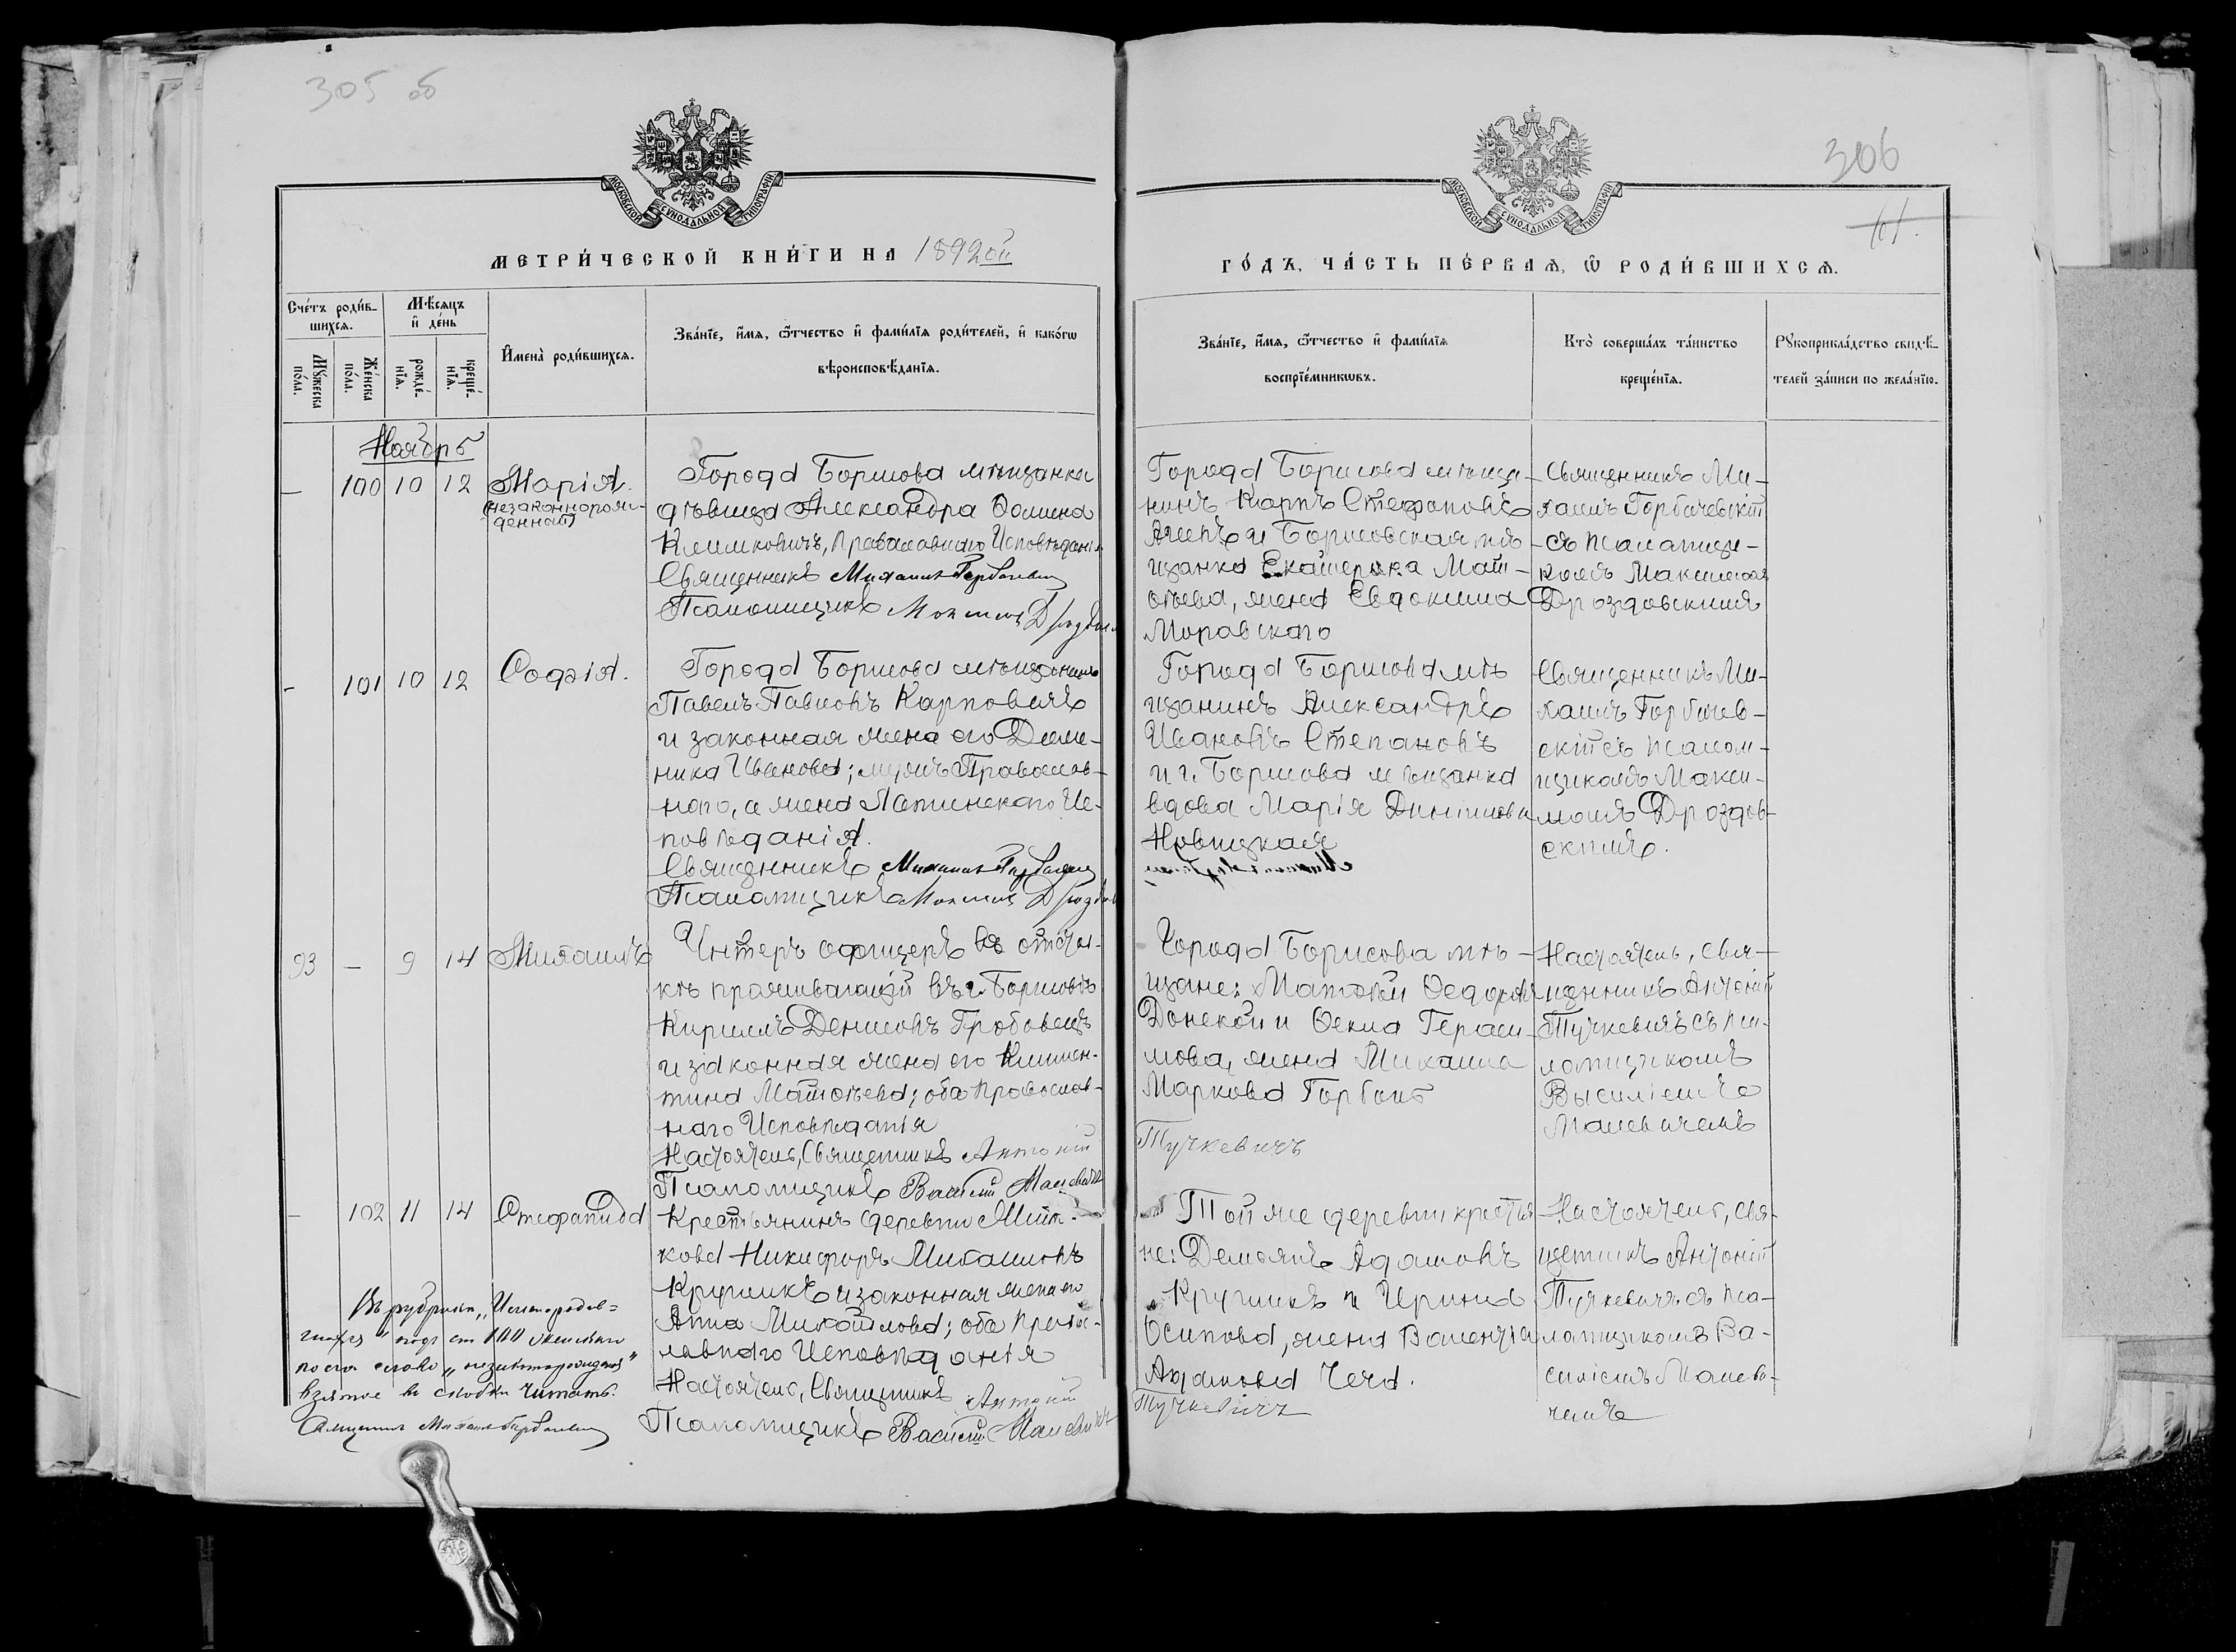 305 об
МОСКОВСКОЙ СУНОДАЛЬНОЙ ТИПОГРАФІИ
МЕТРИ́ЧЕСКОЙ КНИ́ГИ НА 1892ой
Сче́тъ роди́в-
шихсѧ.
Мꙋ́жеска
по́ла.
Же́нска
по́ла.
Мѣ́сяцъ
и҆ де́нь
рожде́-
нїѧ.
креще́-
нїѧ.
И҆мена̀ роди́вшихсѧ.
Зва́нїе, и҆́мѧ, ѻ҆́тчество и҆ фами́лїѧ роди́телей, и҆ како́гѡ
вѣроисповѣ́данїѧ.
Ноябрь
— 100 10 12 Марія.
(незаконнорож-
денная)
Города Борисова мѣщанка
дѣвица Александра Ѳомина
Климковичъ, Православнаго Исповѣданія
Священникъ Михаилъ Горбачевскій
Псаломщикъ Максимъ Дроздовскій
- 101 10 12 Софія.
Города Борисова мѣщанинъ
Павелъ Павловъ Карповичъ
и законная жена его Доми-
ника Иванова; мужъ Православ-
наго, а жена Латинскаго Ис-
повѣданія.
Священникъ Михаилъ Горбачевскій
Псаломщикъ Максимъ Дроздовскій
93 — 9 14 Михаилъ
Унтеръ офицеръ въ отстав-
кѣ проживающій въ г. Борисовѣ
Кириллъ Денисовъ Гробовецъ
и законная жена его Климен-
тина Матѳѣева; оба православ-
наго Исповѣданія
Настоятель, Священникъ Антоній
Псаломщикъ Василій Малевичъ
- 102 11 14 Стефанида
Крестьянинъ деревни
кова Никифоръ Михаиловъ
Кругликъ и законная жена его
Анна Михайлова; оба правос-
лавнаго Исповѣданія
Настоятель, Священникъ Антоній
Псаломщикъ Василій Малевичъ
Въ рубрикѣ „Имена родив-
шихся" подъ ст 100 женскаго
пола слово „незаконнорожденная"
взятое въ скобки читать.
Священникъ Михаилъ Горбачевскій
306
61.
МОСКОВСКОЙ СУНОДАЛЬНОЙ ТИПОГРАФІИ
ГО́ДЪ, ЧА́СТЬ ПЕ́РВАѦ, Ѽ РОДИ́ВШИХСѦ.
Зва́нїе, и҆́мѧ, ѻ҆́тчество и҆ фами́лїѧ
воспрїе́мникѡвъ.
Кто̀ соверша́лъ та́инство
креще́нїѧ.
Рꙋкоприкла́дство свидѣ́-
телей за́писи по жела́нїю.
Города Борисова мѣща-
нинъ Карпъ Стефановъ
и Борисовская мѣ-
щанка Екатерина Мат-
ѳѣева, жена Евдокима
Моравскаго
Священникъ Ми-
хаилъ Горбачевскій
съ псаломщи-
комъ Максимомъ
Дроздовскимъ
Города Борисова мѣ-
щанинъ Александръ
Ивановъ Степановъ
и г. Борисова мѣщанка
вдова Марія
Новицкая
Священникъ Ми-
хаилъ Горбачев-
скій съ псалом-
щикомъ Макси-
момъ Дроздов-
скимъ.
Города Борисова мѣ-
щане: Матѳѣй Ѳедоровъ
Донской и Ѳекла Гераси-
мова, жена Михаила
Маркова Горбач
Тучкевичъ
Настоятель, Свя-
щенникъ Антоній
Тучкевичъ съ пса-
ломщикомъ
Василіемъ
Малевичемъ
Той же деревни крестья-
не: Демьянъ Адамовъ
Кругликъ и Ирина
Осипова, жена Валентія
Адамова
Тучкевичъ
Настоятель, Свя-
щенникъ Антоній
Тучкевичъ съ пса-
ломщикомъ Ва-
силіемъ Малеви-
чемъ